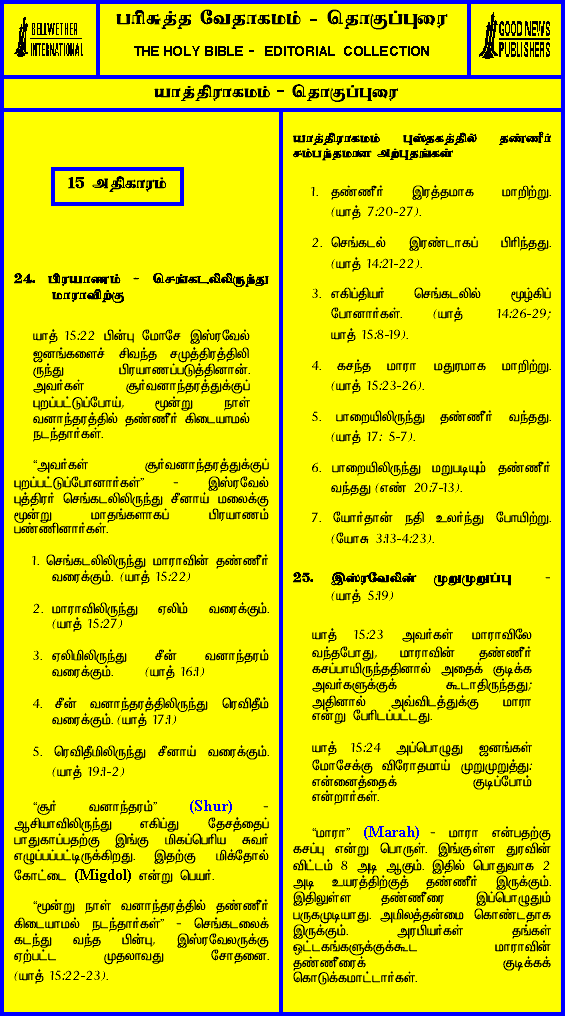 BELLWETHER
INTERNATIONAL
பரிசுத்த வேதாகமம் - தொகுப்புரை
THE HOLY BIBLE - EDITORIAL COLLECTION
GOOD NEWS
PUBLISHERS
யாத்திராகமம் - தொகுப்புரை
15 அதிகாரம்
24. பிரயாணம் - செங்கடலிலிருந்து
மாராவிற்கு
யாத் 15:22 பின்பு மோசே இஸ்ரவேல்
ஜனங்களைச் சிவந்த சமுத்திரத்திலி
ருந்து பிரயாணப்படுத்தினான்.
அவர்கள் சூர்வனாந்தரத்துக்குப்
புறப்பட்டுப்போய், மூன்று நாள்
வனாந்தரத்தில் தண்ணீர் கிடையாமல்
நடந்தார்கள்.
“அவர்கள் சூர்வனாந்தரத்துக்குப்
புறப்பட்டுப்போனார்கள்” - இஸ்ரவேல்
புத்திரர் செங்கடலிலிருந்து சீனாய் மலைக்கு
மூன்று மாதங்களாகப் பிரயாணம்
பண்ணினார்கள்.
1. செங்கடலிலிருந்து மாராவின் தண்ணீர்
வரைக்கும். (யாத் 15:22)
2. மாராவிலிருந்து ஏலிம் வரைக்கும்.
(யாத் 15:27)
3. ஏலிமிலிருந்து சீன் வனாந்தரம்
வரைக்கும். (யாத் 16:1)
4. சீன் வனாந்தரத்திலிருந்து ரெவிதீம்
வரைக்கும். (யாத் 17:1)
5. ரெவிதீமிலிருந்து சீனாய் வரைக்கும்.
(யாத் 19:1-2)
“சூர் வனாந்தரம்” (Shur) -
ஆசியாவிலிருந்து எகிப்து தேசத்தைப்
பாதுகாப்பதற்கு இங்கு மிகப்பெரிய சுவர்
எழுப்பப்பட்டிருக்கிறது. இதற்கு மிக்தோல்
கோட்டை (Migdol) என்று பெயர்.
“மூன்று நாள் வனாந்தரத்தில் தண்ணீர்
கிடையாமல் நடந்தார்கள்” - செங்கடலைக்
கடந்து வந்த பின்பு, இஸ்ரவேலருக்கு
ஏற்பட்ட முதலாவது சோதனை.
(யாத் 15:22-23).
யாத்திராகமம் புஸ்தகத்தில் தண்ணீர்
சம்பந்தமான அற்புதங்கள்
1. தண்ணீர் இரத்தமாக மாறிற்று.
(யாத் 7:20-27).
2. செங்கடல் இரண்டாகப் பிரிந்தது.
(யாத் 14:21-22).
3. எகிப்தியர் செங்கடலில் மூழ்கிப்
போனார்கள். (யாத் 14:26-29;
யாத் 15:8-19).
4. கசந்த மாரா மதுரமாக மாறிற்று.
(யாத் 15:23-26).
5. பாறையிலிருந்து தண்ணீர் வந்தது.
(யாத் 17: 5-7).
6. பாறையிலிருந்து மறுபடியும் தண்ணீர்
வந்தது (எண் 20:7-13).
7. யோர்தான் நதி உலர்ந்து போயிற்று.
(யோசு 3:13-4:23).
25. இஸ்ரவேலின் முறுமுறுப்பு -
(யாத் 5:19)
யாத் 15:23 அவர்கள் மாராவிலே
வந்தபோது, மாராவின் தண்ணீர்
கசப்பாயிருந்ததினால் அதைக் குடிக்க
அவர்களுக்குக் கூடாதிருந்தது;
அதினால் அவ்விடத்துக்கு மாரா
என்று பேரிடப்பட்டது.
யாத் 15:24 அப்பொழுது ஜனங்கள்
மோசேக்கு விரோதமாய் முறுமுறுத்து;
என்னைத்தைக் குடிப்போம்
என்றார்கள்.
“மாரா” (Marah) - மாரா என்பதற்கு
கசப்பு என்று பொருள். இங்குள்ள துரவின்
விட்டம் 8 அடி ஆகும். இதில் பொதுவாக 2
அடி உயரத்திற்குத் தண்ணீர் இருக்கும்.
இதிலுள்ள தண்ணீரை இப்பொழுதும்
பருகமுடியாது. அமிலத்தன்மை கொண்டதாக
இருக்கும். அரபியர்கள் தங்கள்
ஒட்டகங்களுக்குக்கூட மாராவின்
தண்ணீரைக் குடிக்கக்
கொடுக்கமாட்டார்கள்.